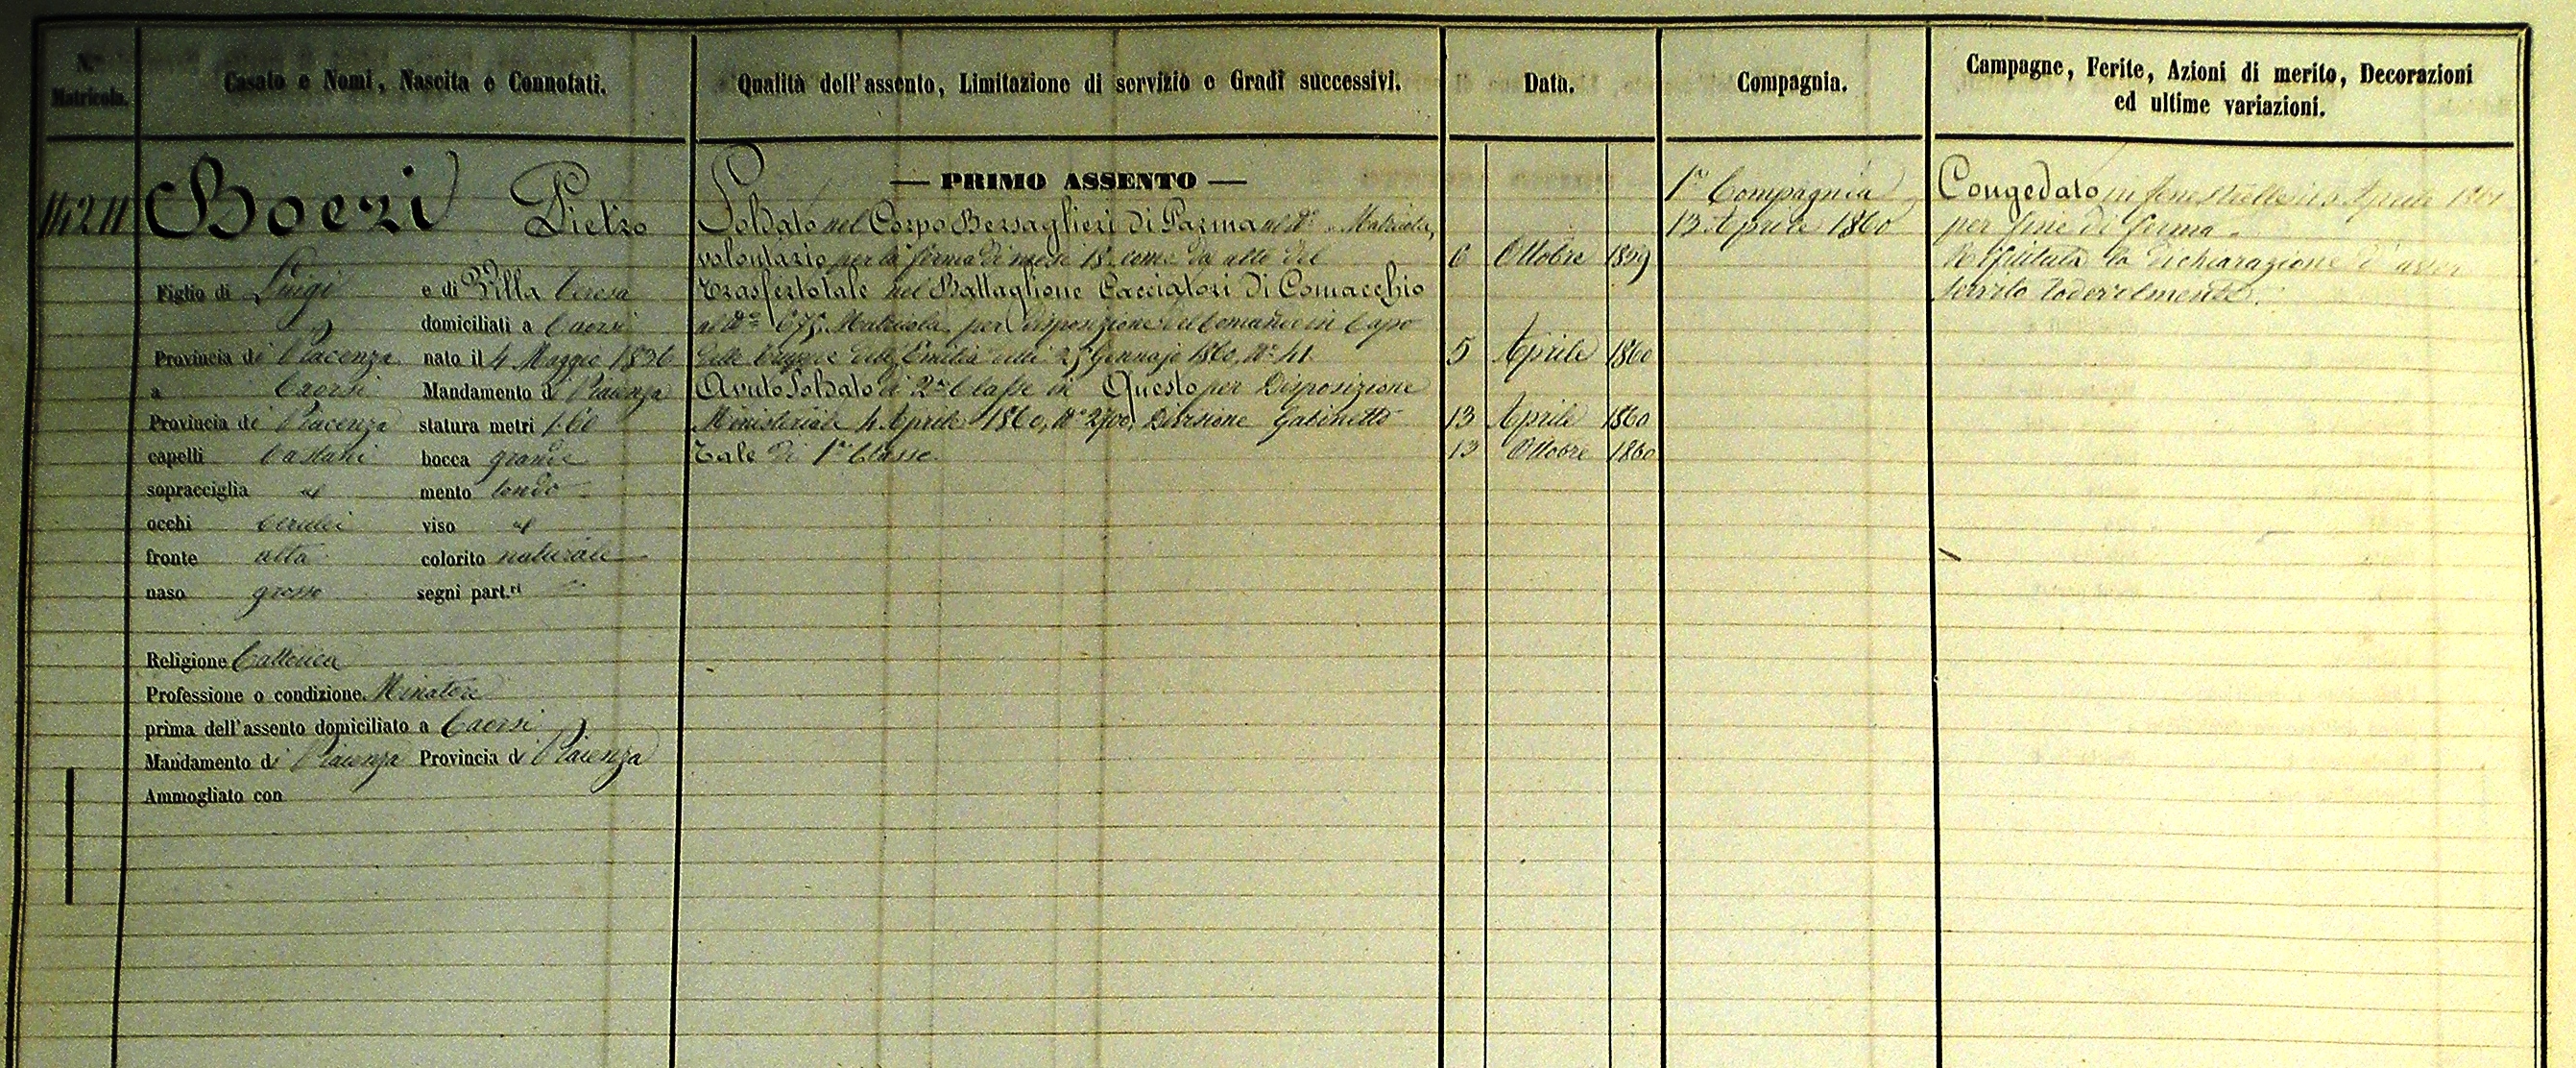 N.° Matricola.
Casato e Nomi, Nascita e Connotati.
Qualità dell'assento, Limitazione di servizio e Gradi successivi.
Data.
Compagnia.
Campagne, Ferite, Azioni di merito, Decorazioni
ed ultime variazioni.
Boeri Pietro
Figlio di Luigi e di Villa Teresa
domiciliati a Caorsi
Provincia di Piacenza nato il 4 Maggio 1836
a Caorsi Mandamento di Piacenza
Provincia di Piacenza statura metri 1.60
capelli Castani bocca grande
sopracciglia id mento tondo
occhi cerulei viso id
fronte alta colorito naturale
naso grosso segni part.ri
Religione Cattolica
Professione o condizione Minatore
prima dell'assento domiciliato a Caorsi
Mandamento di Piacenza Provincia di Piacenza
Ammogliato con
— PRIMO ASSENTO —
Soldato nel Corpo Bersaglieri di Parma al N.° " Matricola,
volontario per la ferma di mesi 18 come da atto del 6 Ottobre 1859
Trasferto tale nel Battaglione Cacciatori di Comacchio
al N.° 675 Matricola per disposizione del Comando in Capo
delle truppe dell'Emilia delli 25 Gennajo 1860, N.° 41 5 Aprile 1860
Avuto Soldato di 2.a Classe in Questo per Disposizione
Ministeriale 4 Aprile 1860, N.° 2700, Divisione Gabinetto 13 Aprile 1860
Tale di 1.a Classe. 13 Ottobre 1860
1.a Compagnia
13 Aprile 1860
Congedato in Aprile 1861
per fine di ferma.
Rifiutata la dichiarazione d'aver
servito lodevolmente.